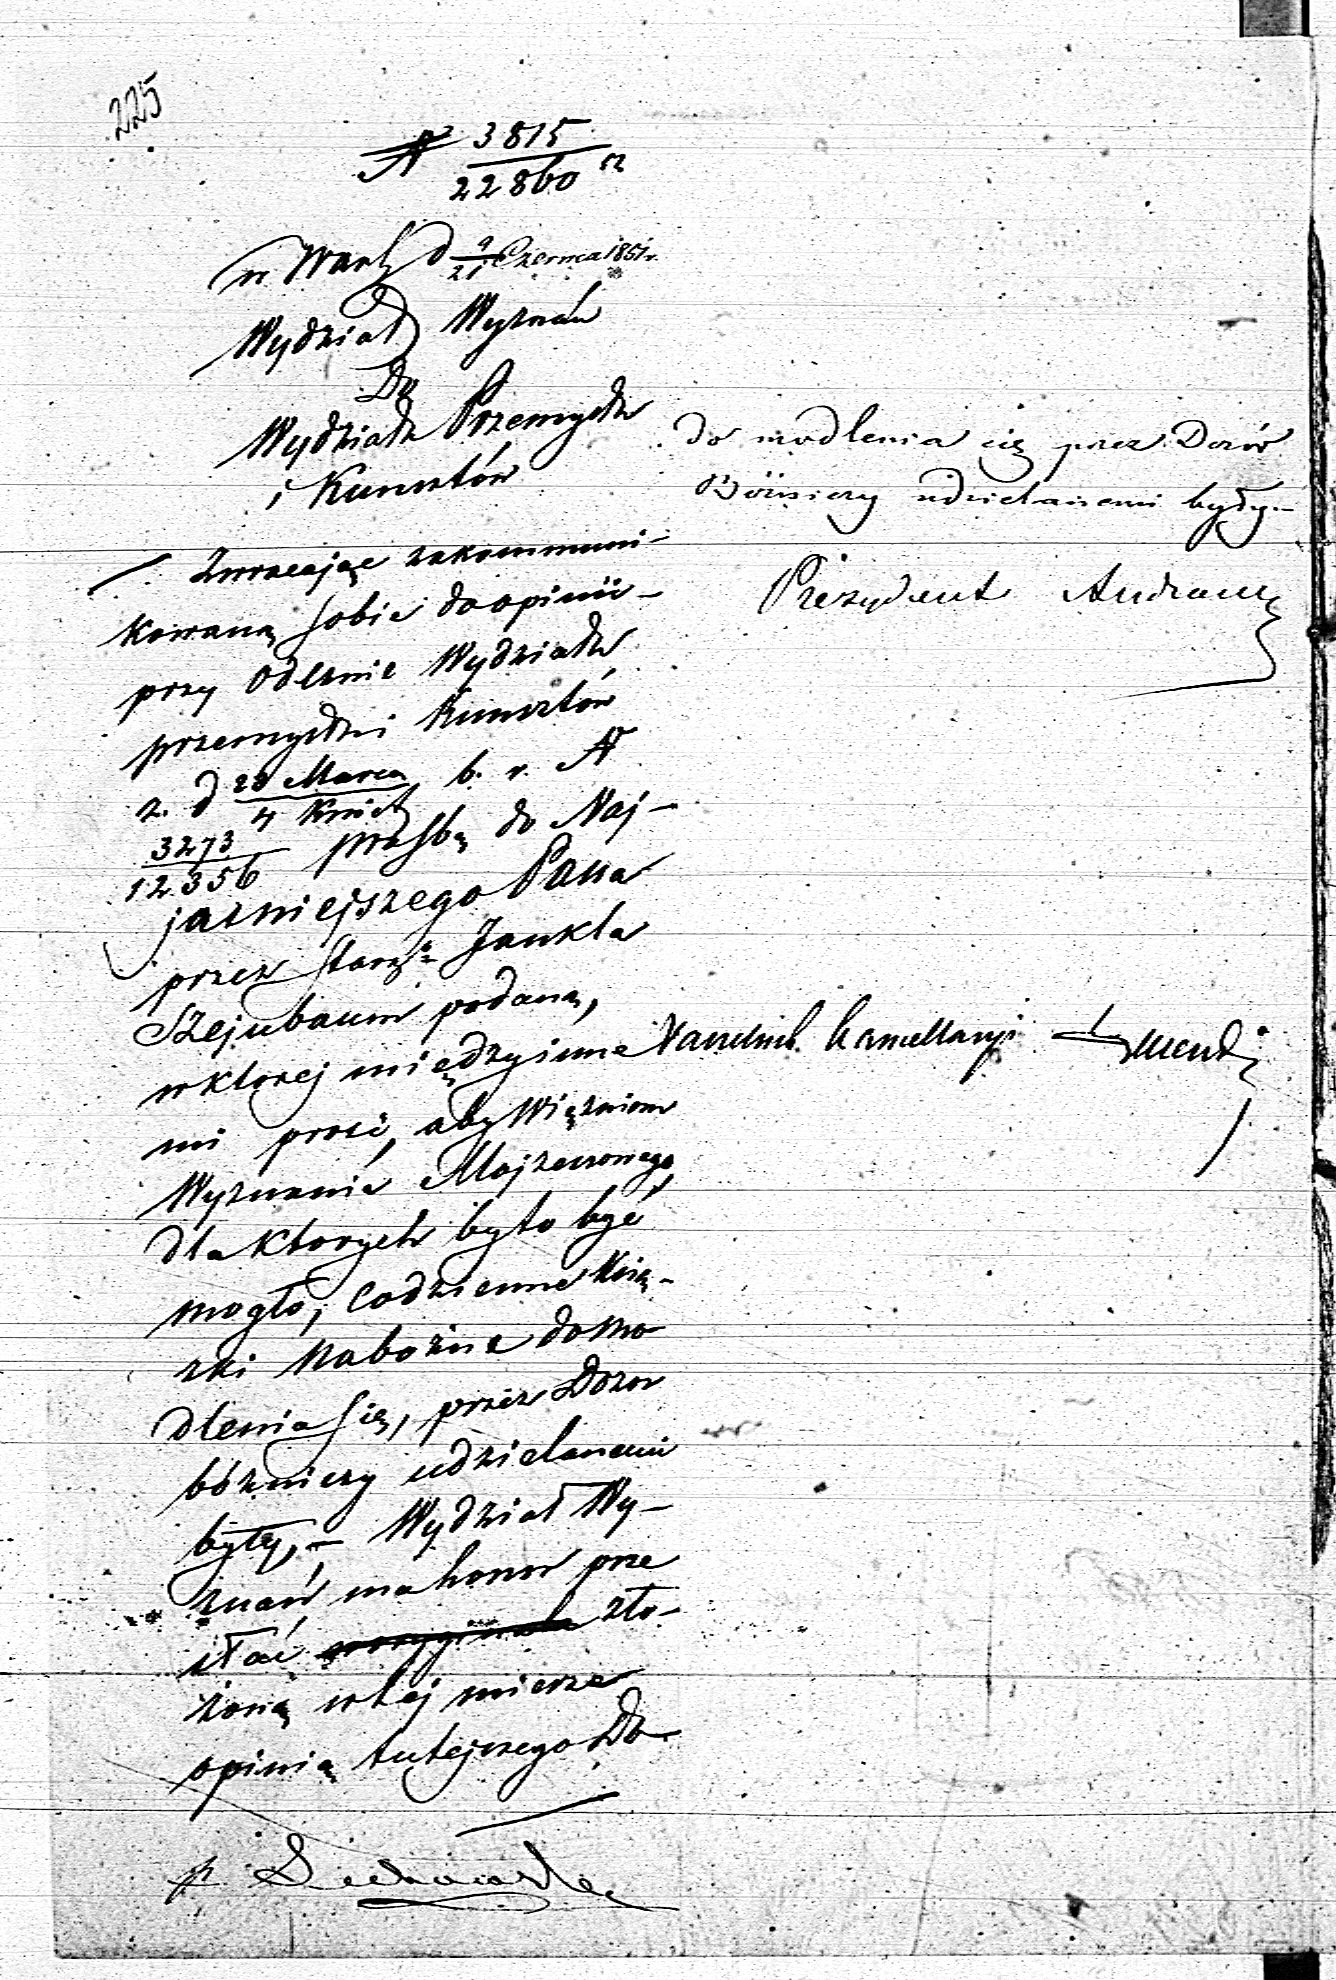 225
N 3815
22860
w Warsz d 9/21 Czerwca 1851 r.
Wydział Wyznań
Do
Wydziału Przemysłu
i Kunsztów
Zwracając zakommuni-
kowaną sobie do opinii
przy Odeznie Wydziału
przemysłu i Kunsztów
z. d 23 Marca / 4 Kwiet b. r. N
3273
12356 prośbę do Naj-
jaśniejszego Pana
przez Starsza Jankla
Szejnbaum podaną,
w ktorej między inne
mi prosi, aby Więźniom
Wyznania Mojżeszowego,
dla ktorych było być
mogło, codzienne Ksią-
żki nabożne do mo
dlenia się, przez Dozor
bóżniczy udzielanemi
były, - Wydział Wy-
znań ma honor prze
słać zło-
żoną w tej mierze
opinią tutejszego Do
do modlenia się przez Dozór
Bóżniczy udzielanemi były.-
Prezydent Andrault
Naczelnik Kancellaryi